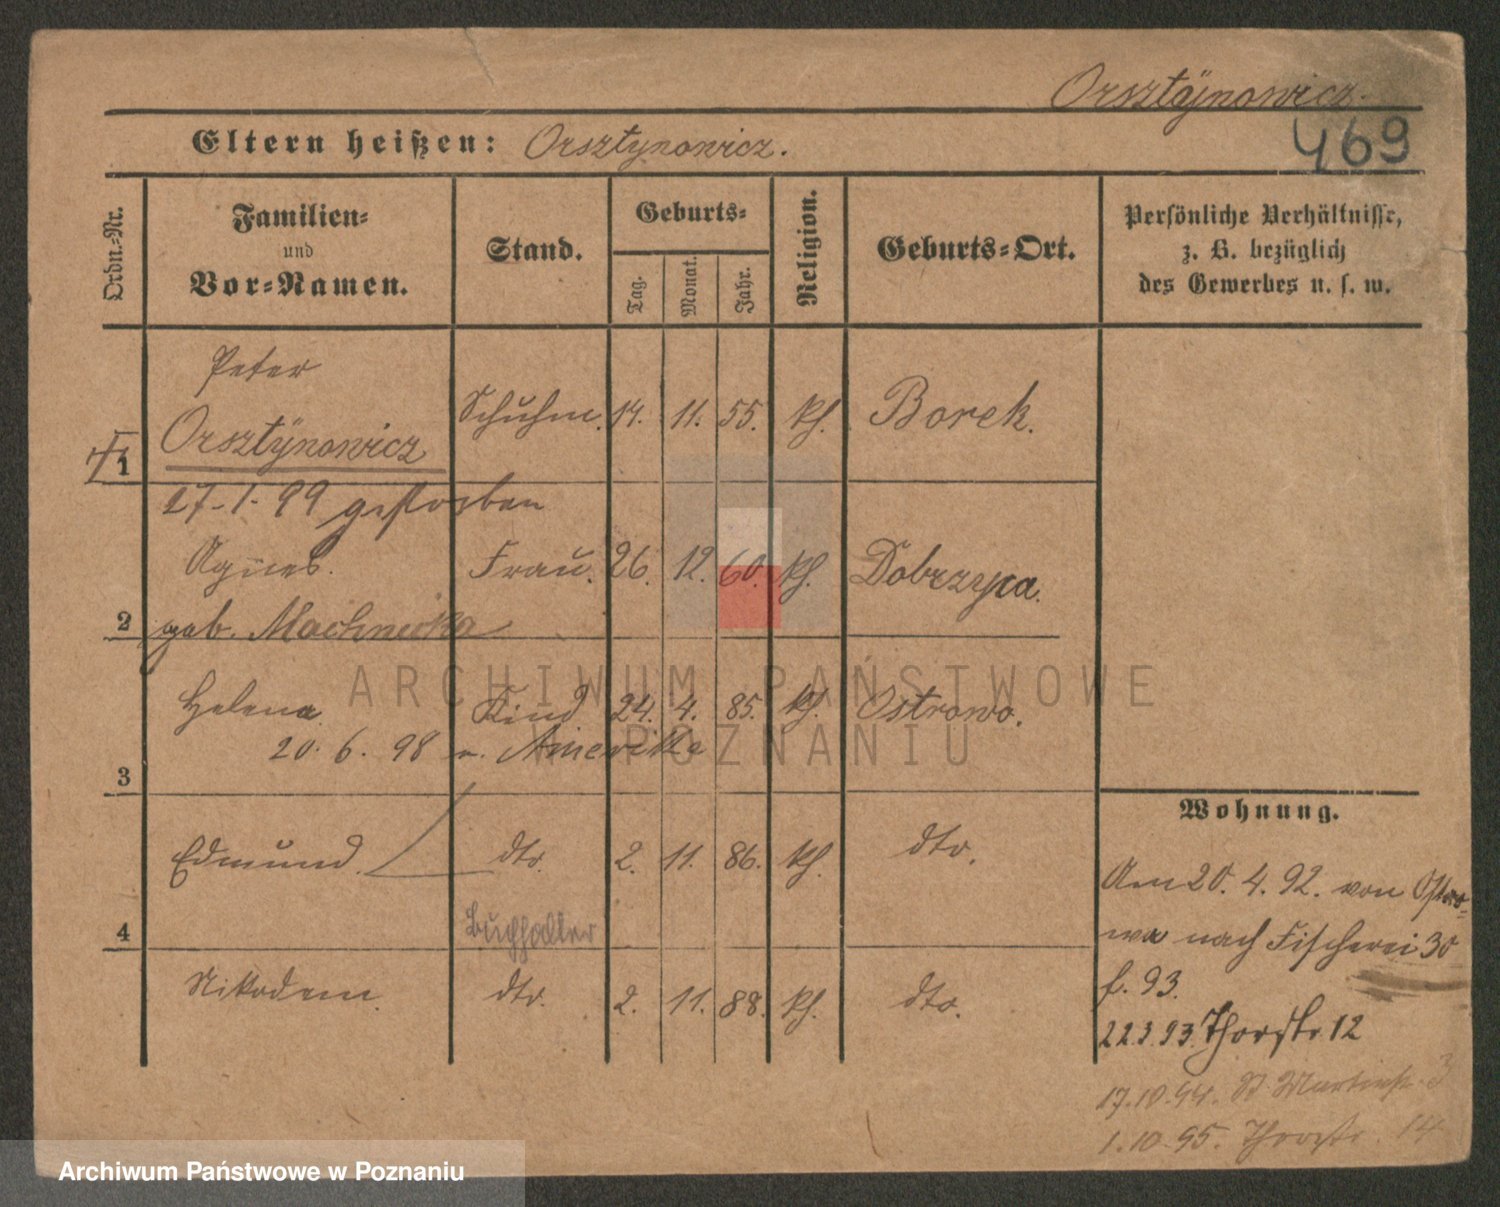 Orsztÿnowicz.
469
Eltern heißen: Orsztynowicz.
Ordn.=Nr.
Familien=
und
Vor=Namen.
Stand.
Geburts=
Tag.
Monat.
Jahr.
Religion.
Geburts=Ort.
Persönliche Verhältnisse,
z. B. bezüglich
des Gewerbes u. s. w.
Peter
1 Orsztÿnowicz Schuhm. 11. 55. kh. Borek.
27.1.99 gestorben
Agnes. Frau. 26. 12. 60. kh. Dobrzyca.
2 geb.
Helena. Kind 24. 4. 85. kh. Ostrowo.
20.6.98 n. Amerika
3
Edmund. dto. 2. 11. 86. kh. dto.
4 Buchhalter
Nikodem. dto. 2. 11. 88. kh. dto.
Wohnung.
Am 20.4.92. von Ostro=
wo nach Fischerei 30
f. 93.
22.3.93. Thorstr. 12
17.10.94. St. Martinstr. 3
1.10.95. Thorstr. 14
ARCHIWUM PAŃSTWOWE
W POZNANIU
Archiwum Państwowe w Poznaniu